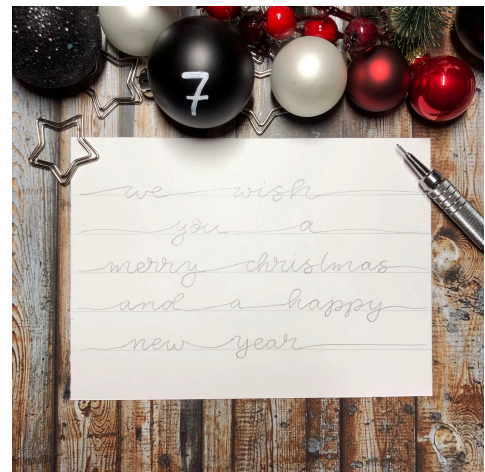 7
we wish
you a
merry christmas
and a happy
new year